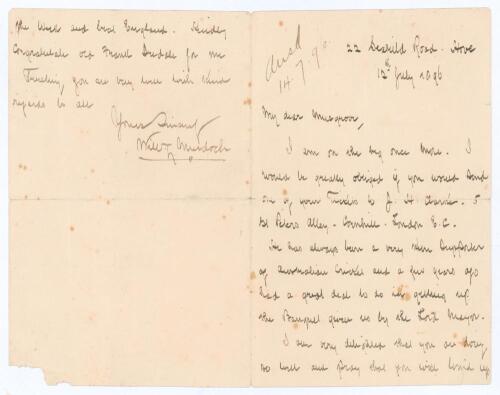 Ansd
14.7.96
22 Seafield Road. Hove
12th July 1896
My dear Musgrove,
I am on the beg once more. I
would be greatly obliged if you would send
one of your Tickets to J. H. Clarke. 5
St Peters Alley. Cornhill. London E.C.
He has always been a very keen supporter
of Australian Cricket and a few years ago
had a great deal to do in getting up
the Banquet given us by the Lord Mayor.
I am very delighted that you are doing
so well and pray that you will wind up
the Week and beat England. Kindly
Congratulate old Frank Iredale for me
Trusting you are very well with kind
regards to all
Yours Sincerely
Will L. Murdoch